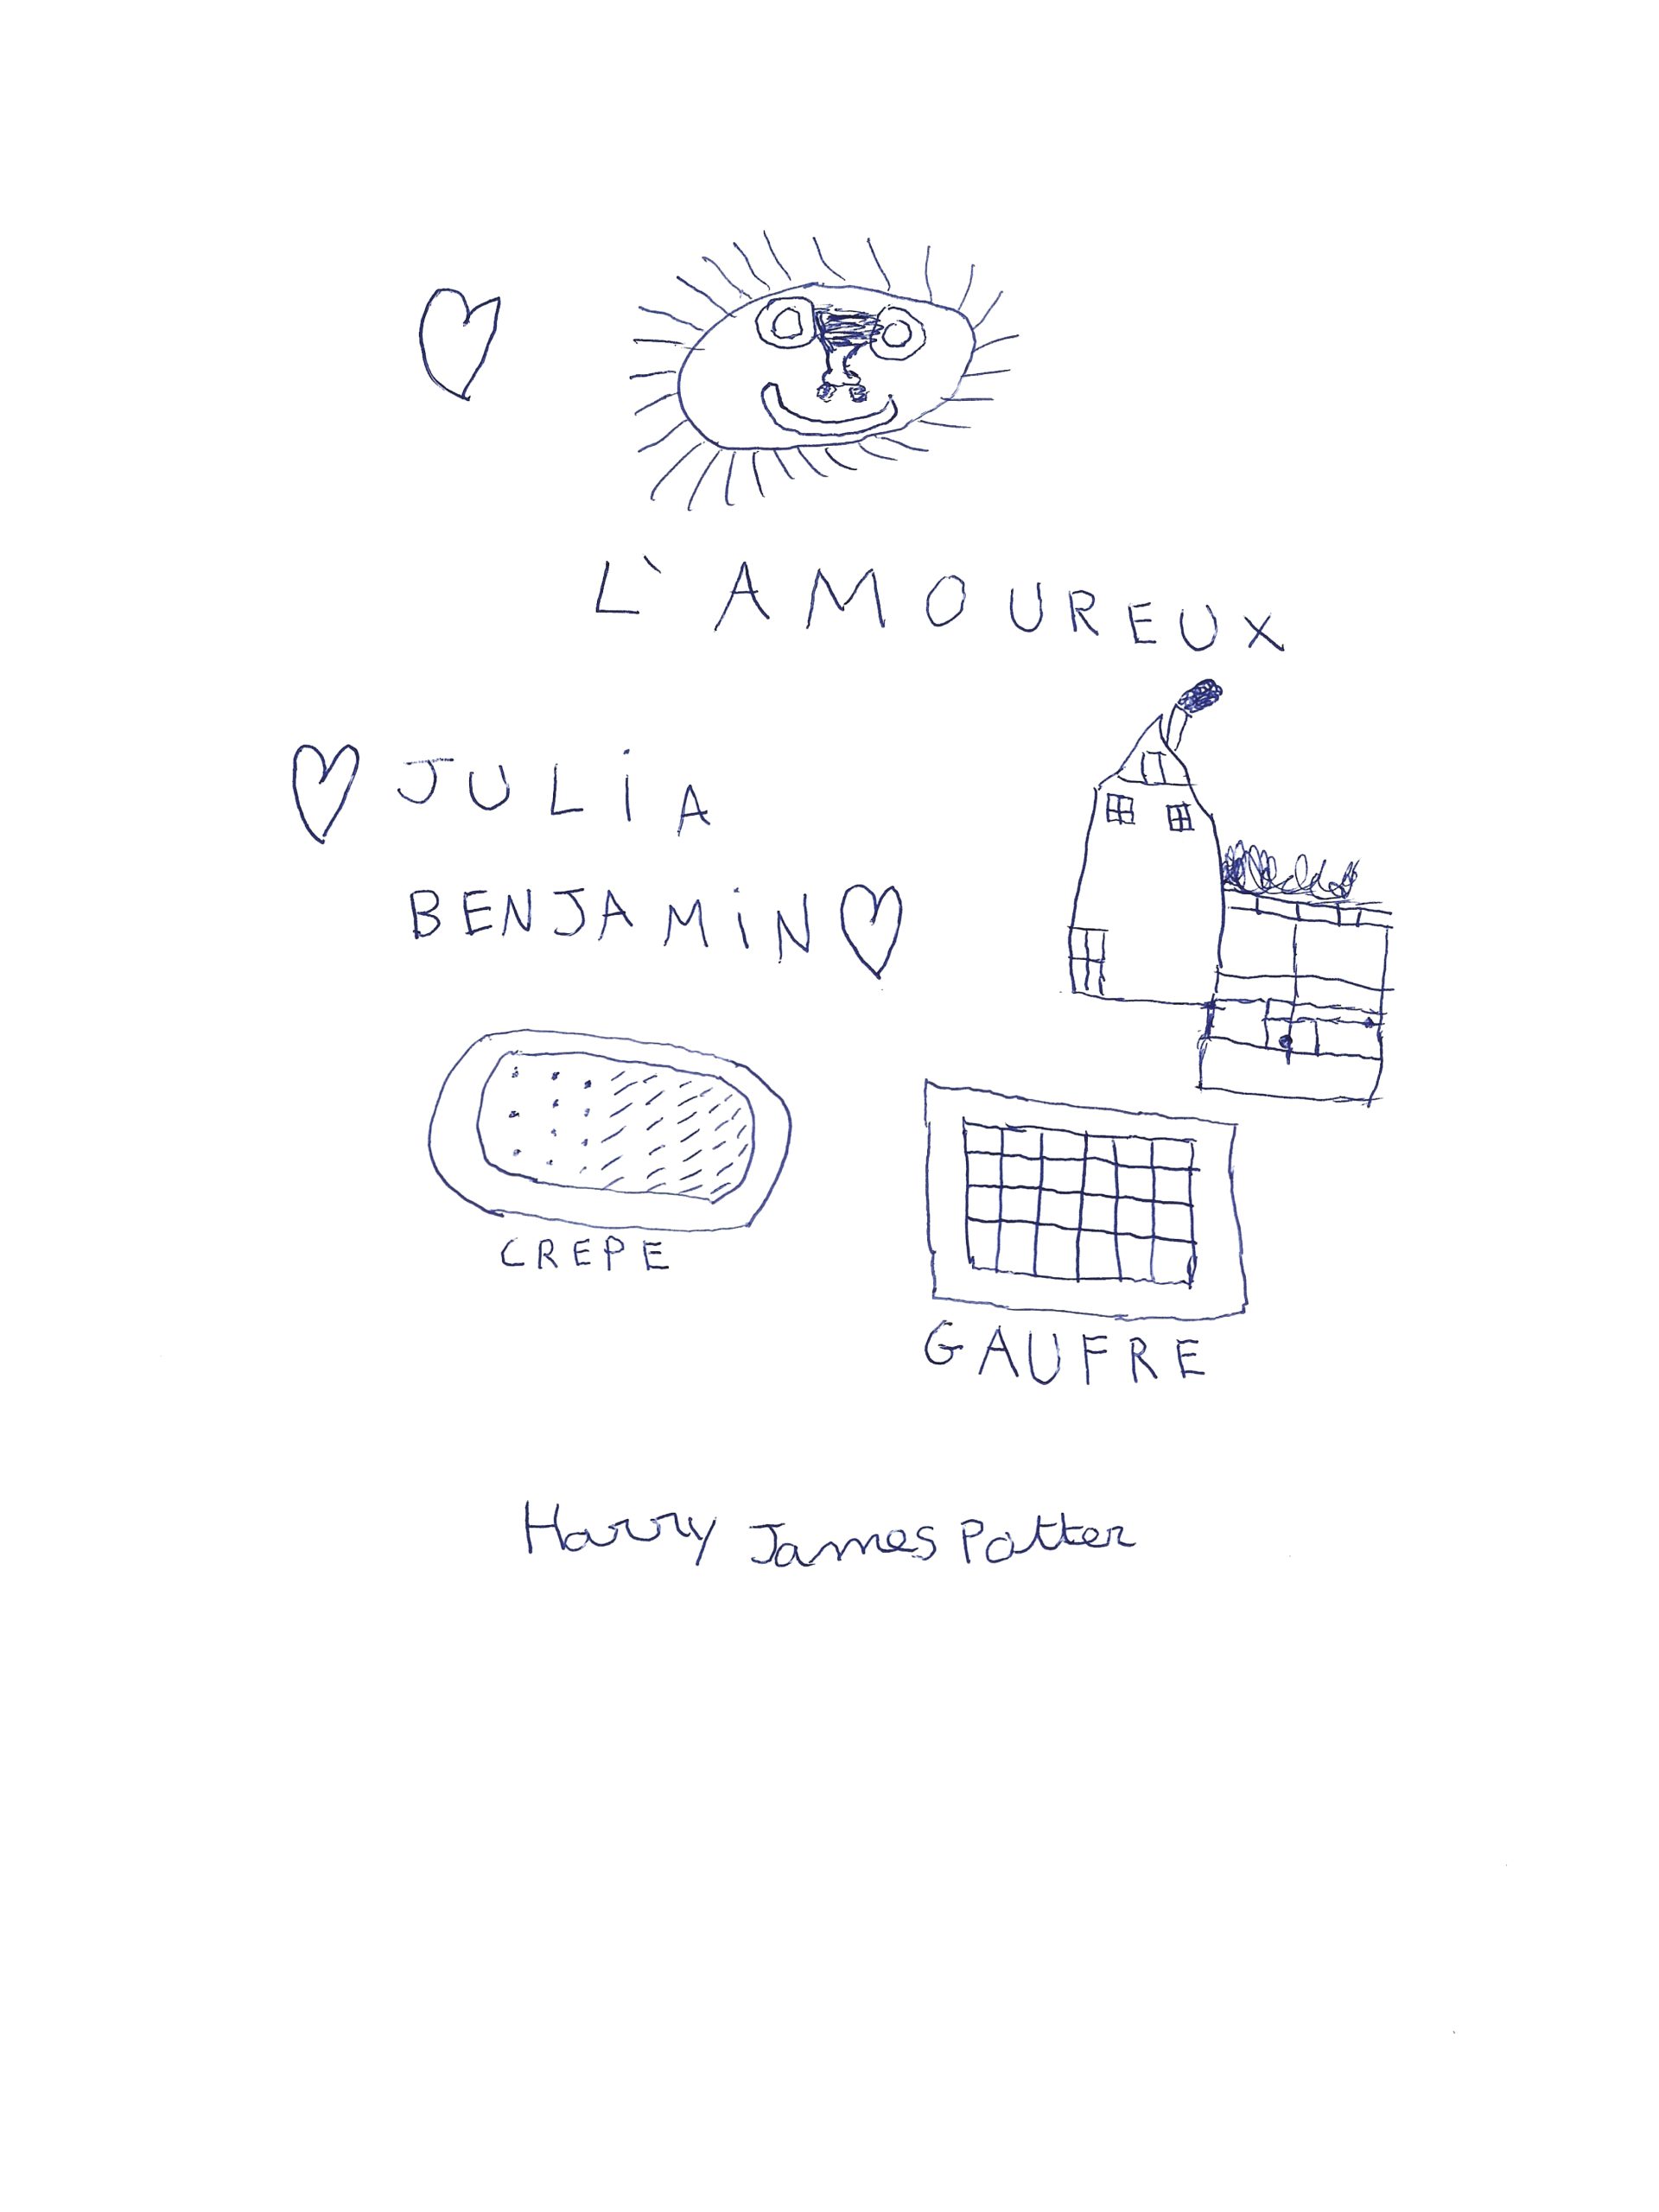 L'AMOUREUX
JULiA
BENJAMiN
CREPE
GAUFRE
Harry James Potter